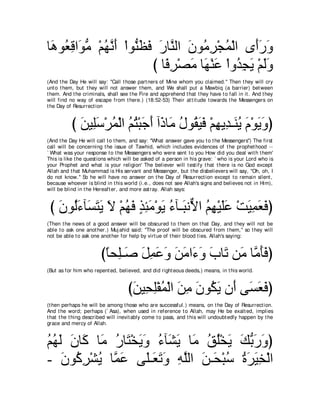 وَرَأَى الْمُجْرِمُونَ النَّارَ فَظَنُّواْ أَنَّهُمْ مُّوَاقِعُوهَا
وَلَمْ يَجِدُواْ عَنْهَا مَصْرِفًا )
(And the Day He will say: "Call those partners of Mine whom you claimed.'' Then they will cry
unto them, but they will not answer them, and We shall put a Mawbiq (a barrier) between
them. And the criminals, shall see the Fire and apprehend that they have to fall in it. And they
will find no way of escape from there.) (18:52-53) Their attitude towards the Messengers on
the Day of Resurrection
(وَيَوْمَ يُنَـدِيهِمْ فَيَقُولُ مَاذَآ أَجَبْتُمُ الْمُرْسَلِينَ )
(And (remember) the Day (Allah) will call to them, and say: "What answer gave you to the Messengers'') The first
call will be concerning the issue of Tawhid, which includes evidences of the prophethood --
`What was your response to the Messengers who were sent to you How did you deal with them'
This is like the questions which will be asked of a person in his grave: `who is your Lord who is
your Prophet and what is your religion' The believer will testify that there is no God except
Allah and that Muhammad is His servant and Messenger, but the disbelievers will say, "Oh, oh, I
do not know.'' So he will have no answer on the Day of Resurrection except to remain silent,
because whoever is blind in this world (i.e., does not see Allah's signs and believes not in Him),
will be blind in the Hereafter, and more astray. Allah says:
(فَعَمِيَتْ عَلَيْهِمُ الاٌّنبَـآءُ يَوْمَئِذٍ فَهُمْ لاَ يَتَسَآءَلُونَ )
(Then the news of a good answer will be obscured to them on that Day, and they will not be
able to ask one another.) Mujahid said; "The proof will be obscured from them,'' so they will
not be able to ask one another for help by virtue of their blood ties. Allah's saying:
(فَأَمَّا مَن تَابَ وَءَامَنَ وَعَمِلَ صَـلِحاً)
(But as for him who repented, believed, and did righteous deeds,) means, in this world.
(فَعَسَى أَن يَكُونَ مِنَ الْمُفْلِحِينَ)
(then perhaps he will be among those who are successful.) means, on the Day of Resurrection.
And the word; perhaps (`Asa), when used in reference to Allah, may He be exalted, implies
that the thing described will inevitably come to pass, and this will undoubtedly happen by the
grace and mercy of Allah.
(وَرَبُّكَ يَخْلُقُ مَا يَشَآءُ وَيَخْتَارُ مَا كَانَ لَهُمُ
الْخِيَرَةُ سُبْحَـنَ اللَّهِ وَتَعَـلَى عَمَّا يُشْرِكُونَ -